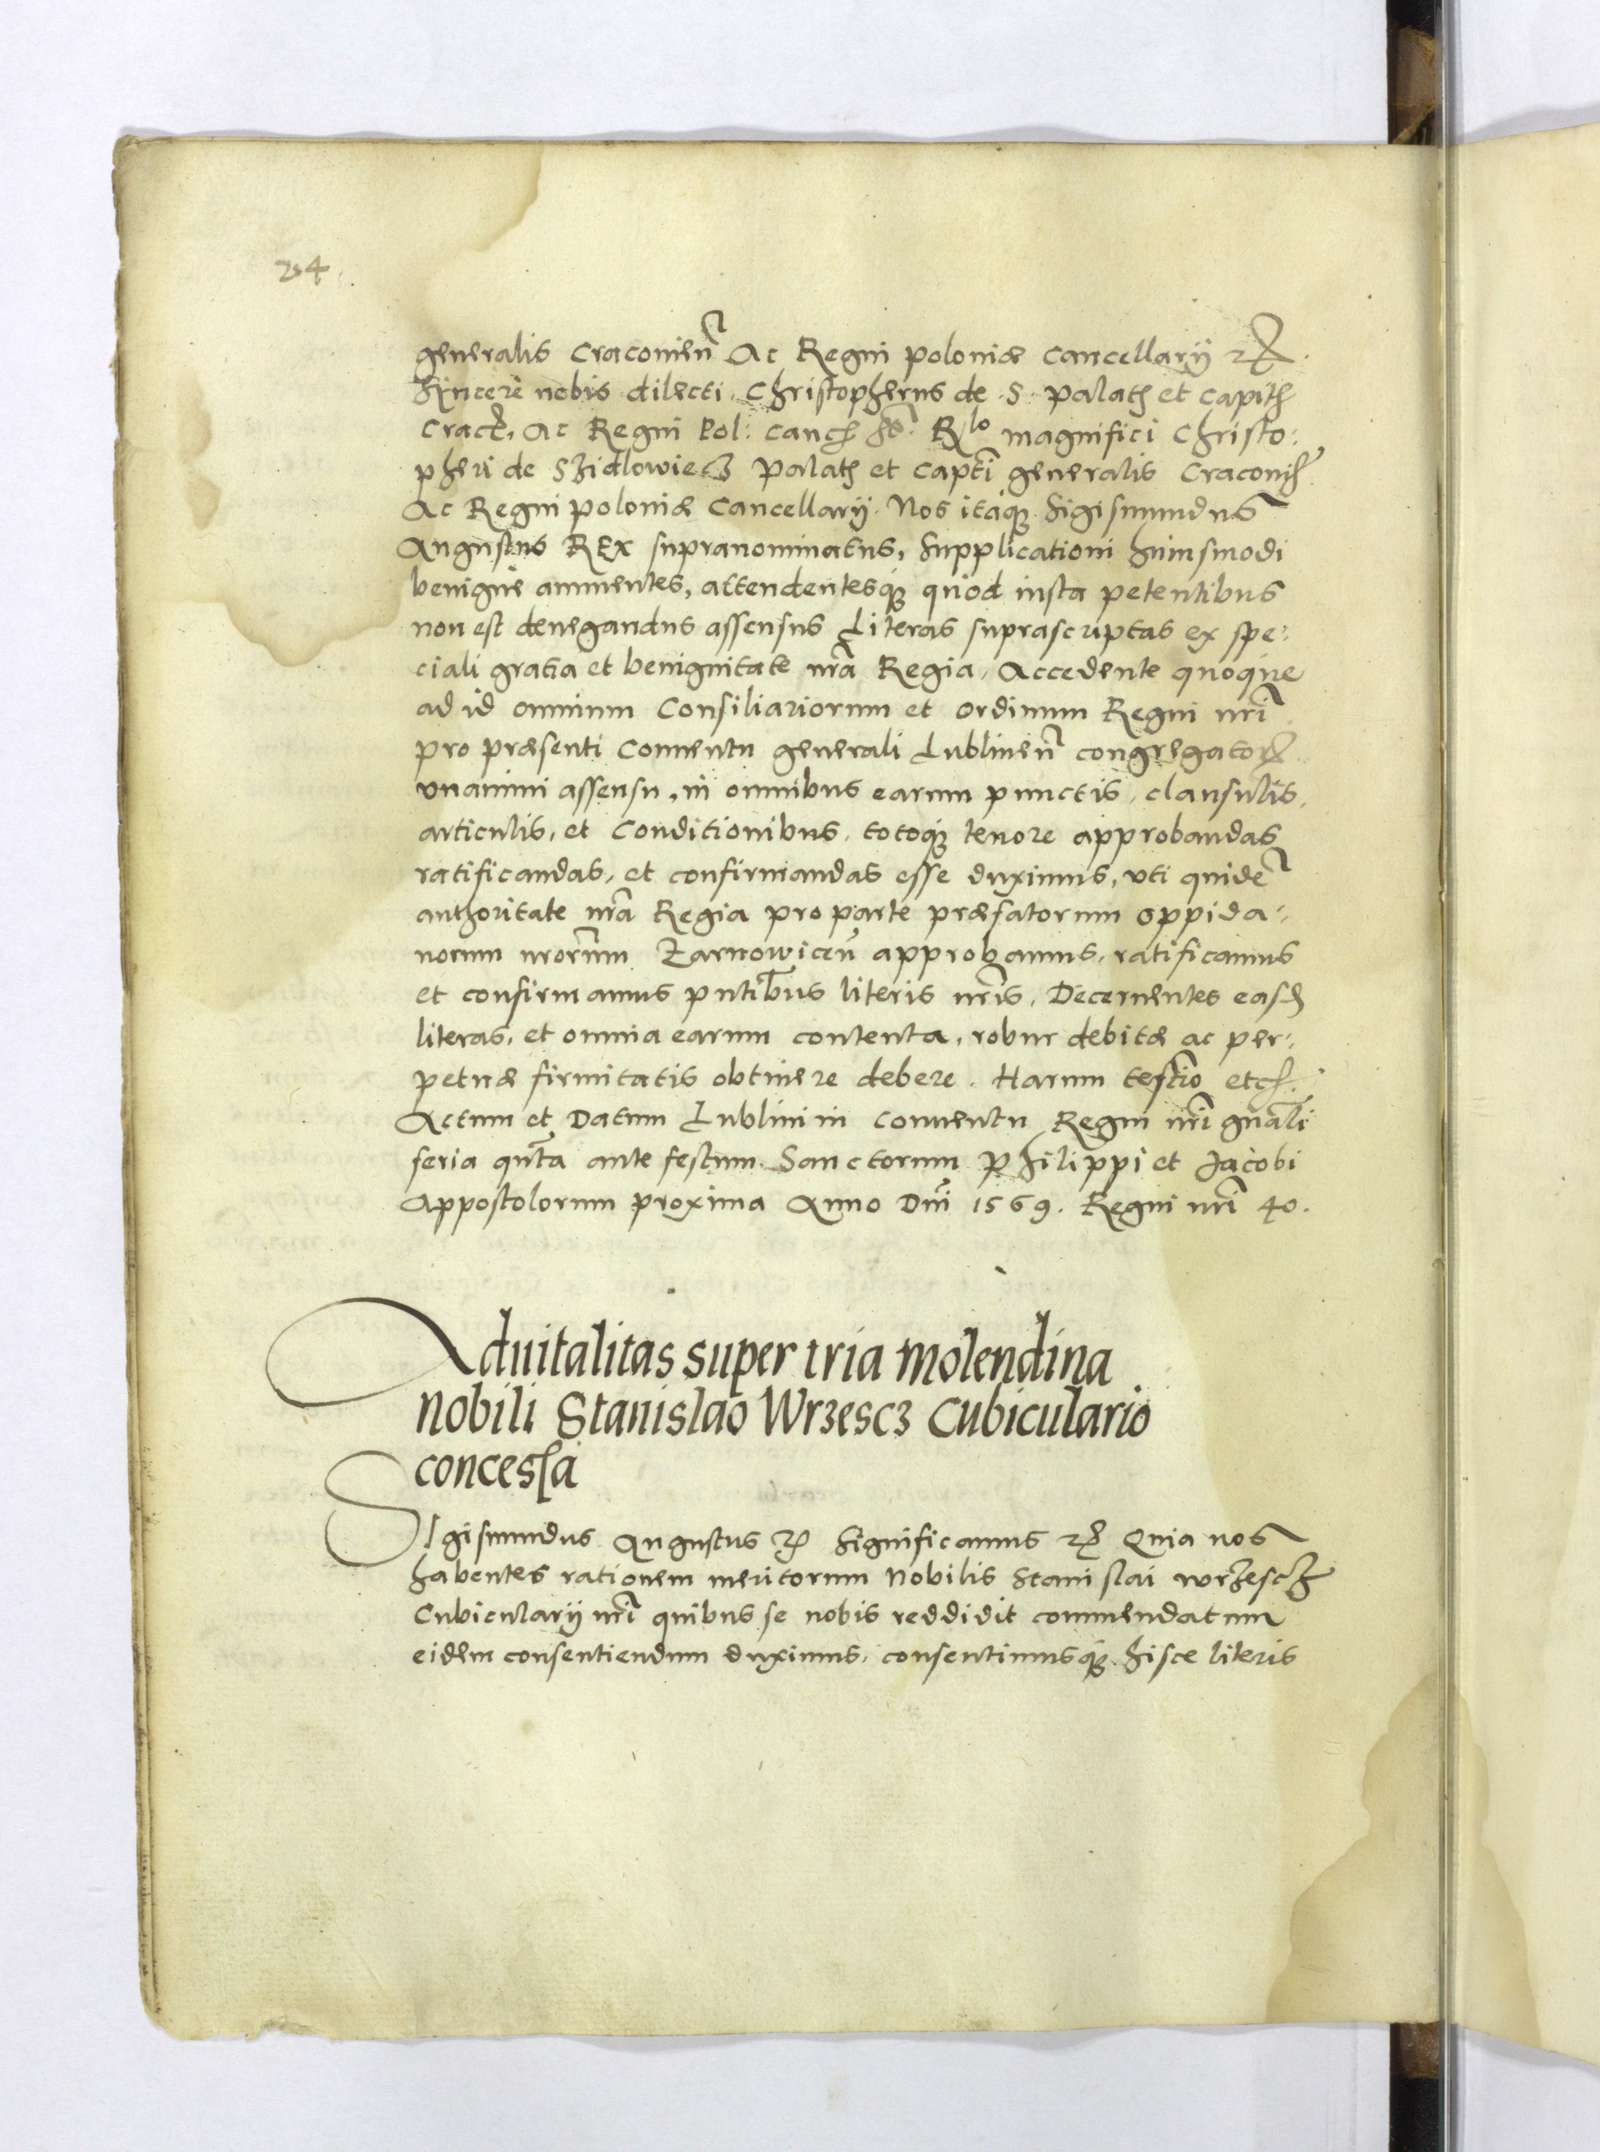 254
generalis Cracovien̄ Ac Regni poloniæ Cancellarÿ etc.
Sincere nobis dilecti. Christopherus de S. Palath et Capith
Crac. Ac Regni Pol: Canc sst. Rlo magnifici Christo:
pheri de Szidlowiecz Palath et Capt̄i generalis Cracovien
Ac Regni poloniæ Cancellarÿ. Nos itaq̄ Sigismundus
Augustus REx supranominatus, Supplicationi huiusmodi
benigne annuentes, attendentesq̄ quod iusta petentibus
non est denegandus assensus Literas suprascriptas ex spe:
ciali gratia et benignitate nr̄a Regia, Accedente quoque
ad id omnium Consiliariorum et Ordinum Regni nr̄i
pro præsenti Conventu generali Lublinen̄ congregator
vnanimi assensu, in omnibus earum punctis, clausulis,
articulis, et Conditionibus, totoq̄ tenore approbandas
ratificandas, et confirmandas esse duximus, vti quidē
authoritate nr̄a Regia pro parte præfatorum oppida:
norum nrorūm Zarnowicen̄ approbamus, ratificamus
et confirmamus pntib̄us literis nr̄is, Decernentes easd
literas, et omnia earum contenta, robur debitæ ac per:
petuæ firmitatis obtinere debere. Harum testīo etc.
Actum et Datum Lublini in conventu Regni nr̄i gnāli
feria qn̄ta ante festum Sanctorum Philippi et Jacobi
Appostolorum proxima Anno Dn̄i 1569. Regni nr̄i 40.
Advitalitas super tria molendina
nobili Stanislao Wrzescz Cubiculario
concessa
SIgismundus Augustus etc Significamus etc Quia nos
habentes rationem meritorum Nobilis Stanislai wrzescz
Cubicularÿ nr̄i quibus se nobis reddidit commendatum
eidem consentiendum duximus, consentimusq̄ hisce literis